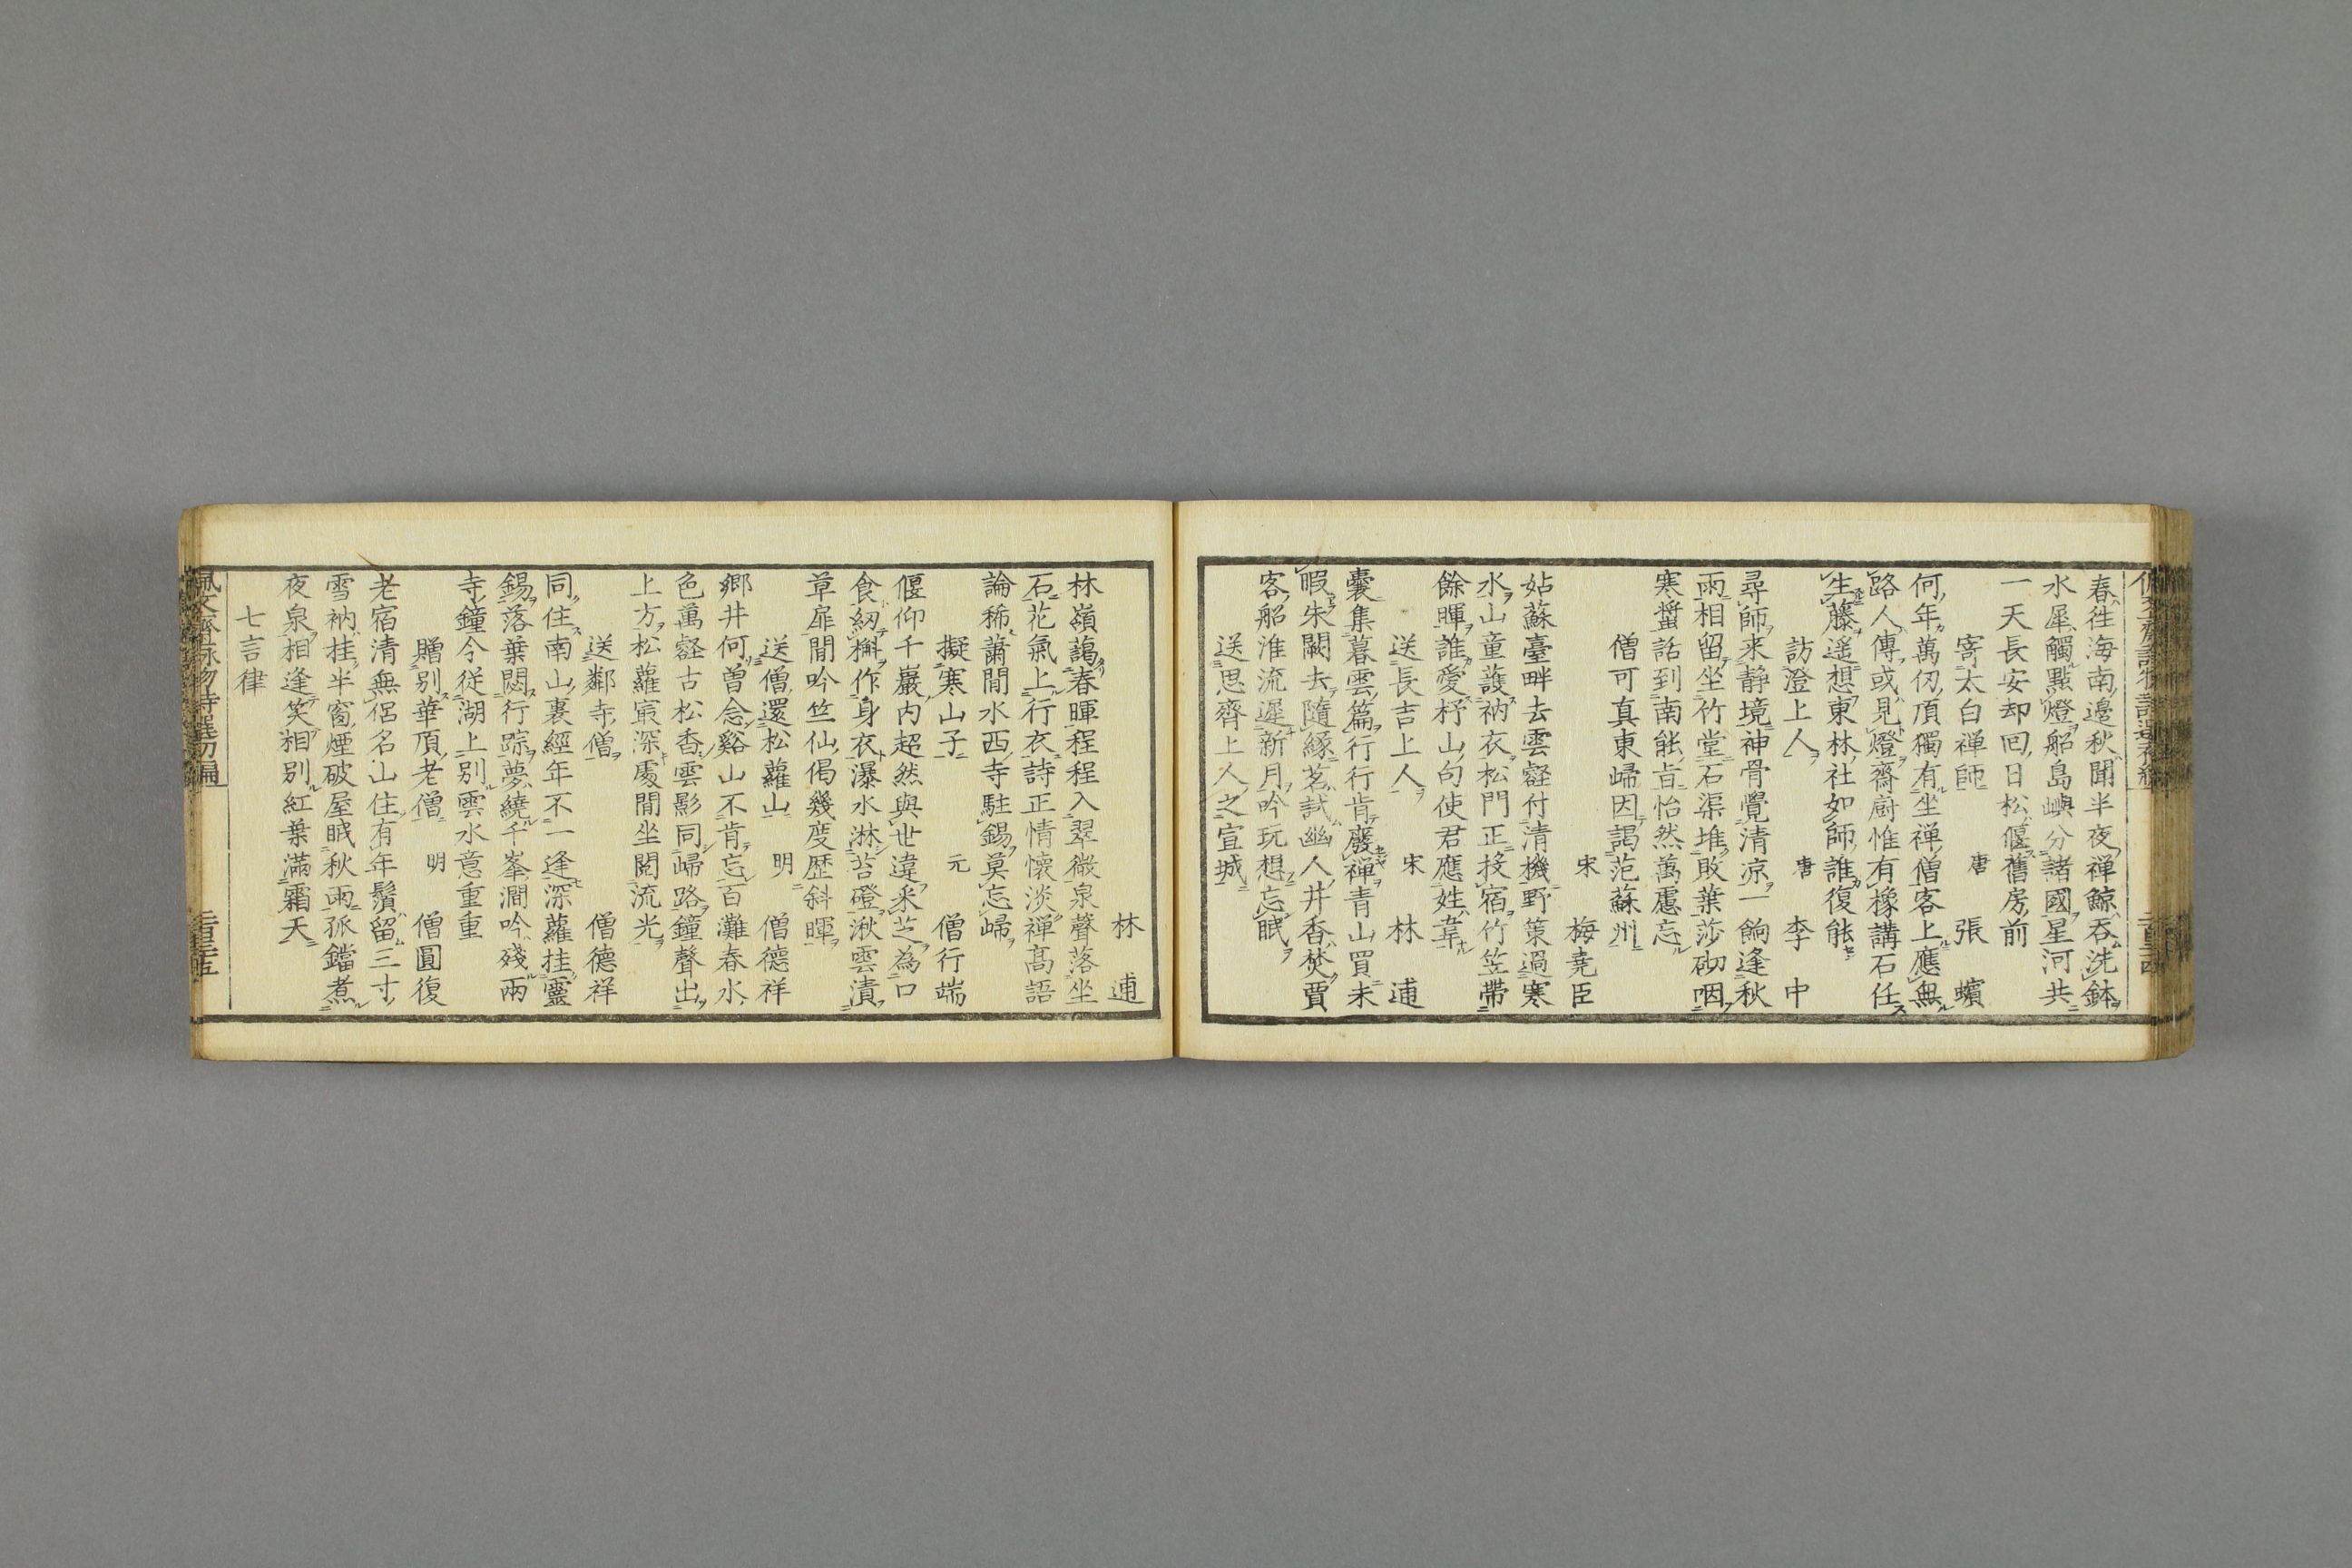 春徃海南邊秋聞半夜禅鯨吞洗鉢
水犀觸點燈船島嶼分諸國星河共
一天長安却回日松偃舊房前
寄太白禅師 唐 張 蠙
何年萬仞頂獨有坐禅僧客上應無
路人傳或見燈齋厨惟有橡講石任
生藤遥想東林社如師誰復能
訪澄上人 唐 李 中
尋師来静境神骨覺清凉一餉逢秋
雨相留坐竹堂石渠堆敗葉莎砌咽
寒螿話到南能㫖怡然萬慮忘
僧可真東歸因謁范蘇州
宋 梅堯臣
姑蘇臺畔去雲壑付清機野策過寒
水山童護衲衣松門正投宿竹笠帶
餘暉誰愛杼山句使君應姓韋
送長吉上人 宋 林 逋
囊集暮雲篇行行肯廢禅青山買未
暇朱闕去隨緣茗試幽人井香焚賈
客船淮流遲新月吟玩想忘眠
送思齊上人之宣城
林 逋
林嶺藹春暉程程入翠微泉聲落坐
石花氣上行衣詩正情懷淡禅髙語
論稀蕭閒水西寺駐錫莫忘歸
擬寒山子 元 僧行端
偃仰千巖内超然與世違采芝為口
食紉槲作身衣瀑水淋苔磴湫雲漬
草扉閒吟竺仙偈幾度歴斜暉
送僧還松蘿山 明 僧德祥
鄉井何曾念谿山不肯忘百灘春水
色萬壑古松香雲影同歸路鐘聲出
上方松蘿㝡深處閒坐閲流光
送鄰寺僧 僧德祥
同住南山裏經年不一逢深蘿挂靈
錫落葉悶行踪夢繞千峯澗吟殘兩
寺鐘今従湖上别雲水意重重
贈别華頂老僧 明 僧圓復
老宿清無侣名山住有年鬚留三寸
雪衲桂半窗煙破屋眠秋雨孤鐺煮
夜泉相逢笑相別紅葉滿霜天
七言律
佩文齋詠物詩選初編